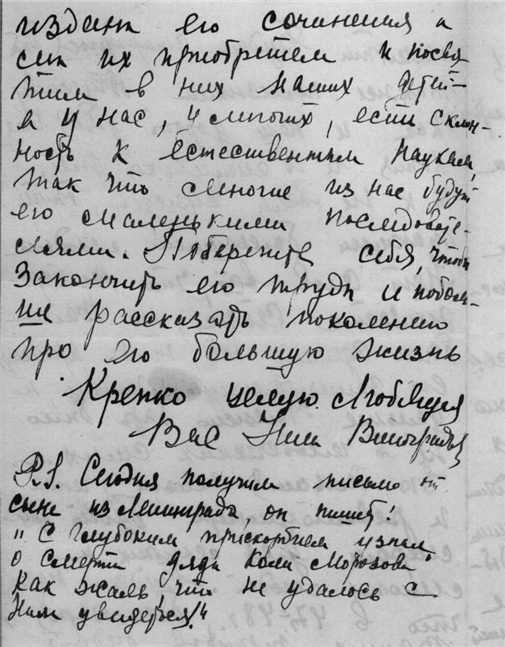 издани его сочинения и
мы их приобретем и посвя
тим в них наших детей -
а у нас, у многих, есть склон-
ность к естественным наукам,
так что многие из нас будут
его маленькими последовате-
лями. Поберегите себя, чтобы
закончить его труды и поболь-
ше рассказать поколению
про его большую жизнь
Крепко целую. Любящая
Вас Нина Виноградова
P.S. Сегодня получили письмо от
сына из Ленинграда, он пишет:
"С глубоким прискорбием узнал
о смерти дяди Коли Морозова
как жаль, что не удалось с
ним увидеться!"